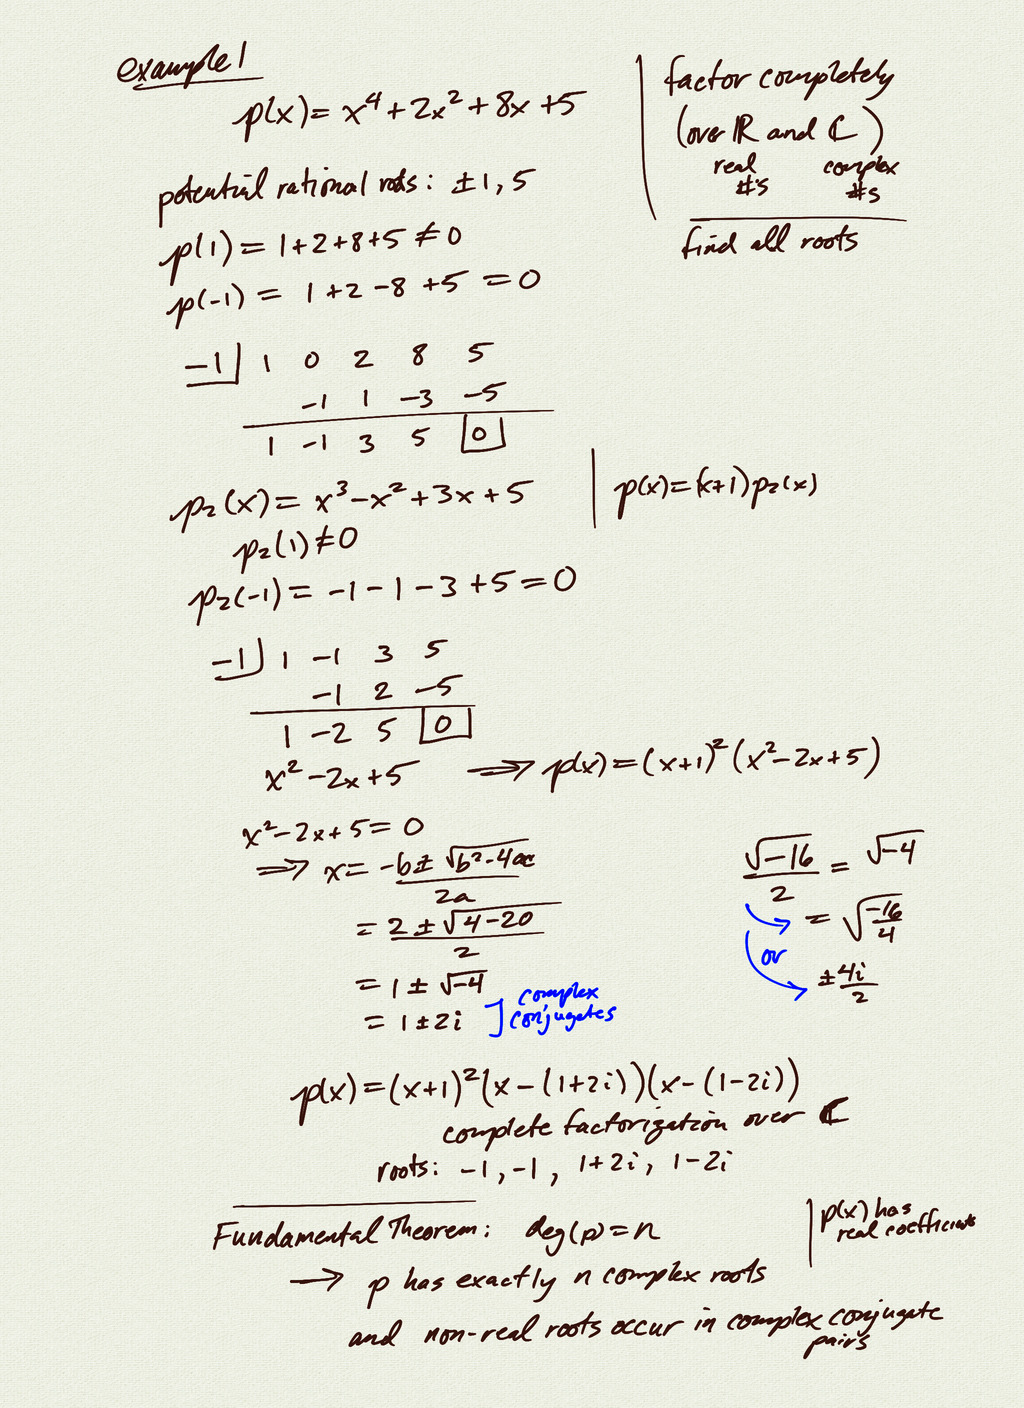 example 1
p(x) = x⁴ + 2x² + 8x + 5
factor completely
(over ℝ and ℂ)
real #'s complex #s
find all roots
potential rational roots: ±1, 5
p(1) = 1+2+8+5 ≠ 0
p(-1) = 1+2-8+5 = 0
-1| 1 0 2 8 5
-1 1 -3 -5
1 -1 3 5 0
p₂(x) = x³ - x² + 3x + 5
p(x) = (x+1)p₂(x)
p₂(1) ≠ 0
p₂(-1) = -1 - 1 - 3 + 5 = 0
-1| 1 -1 3 5
-1 2 -5
1 -2 5 0
x² - 2x + 5 ⟹ p(x) = (x+1)²(x² - 2x + 5)
x² - 2x + 5 = 0
⟹ x = (-b ± √(b²-4ac))/2a
= (2 ± √(4-20))/2
= 1 ± √-4
= 1 ± 2i ] complex conjugates
√-16/2 = √-4
= √(-16/4)
or
±4i/2
p(x) = (x+1)²(x-(1+2i))(x-(1-2i))
complete factorization over ℂ
roots: -1, -1, 1+2i, 1-2i
Fundamental Theorem: deg(p) = n
p(x) has
real coefficients
→ p has exactly n complex roots
and non-real roots occur in complex conjugate
pairs